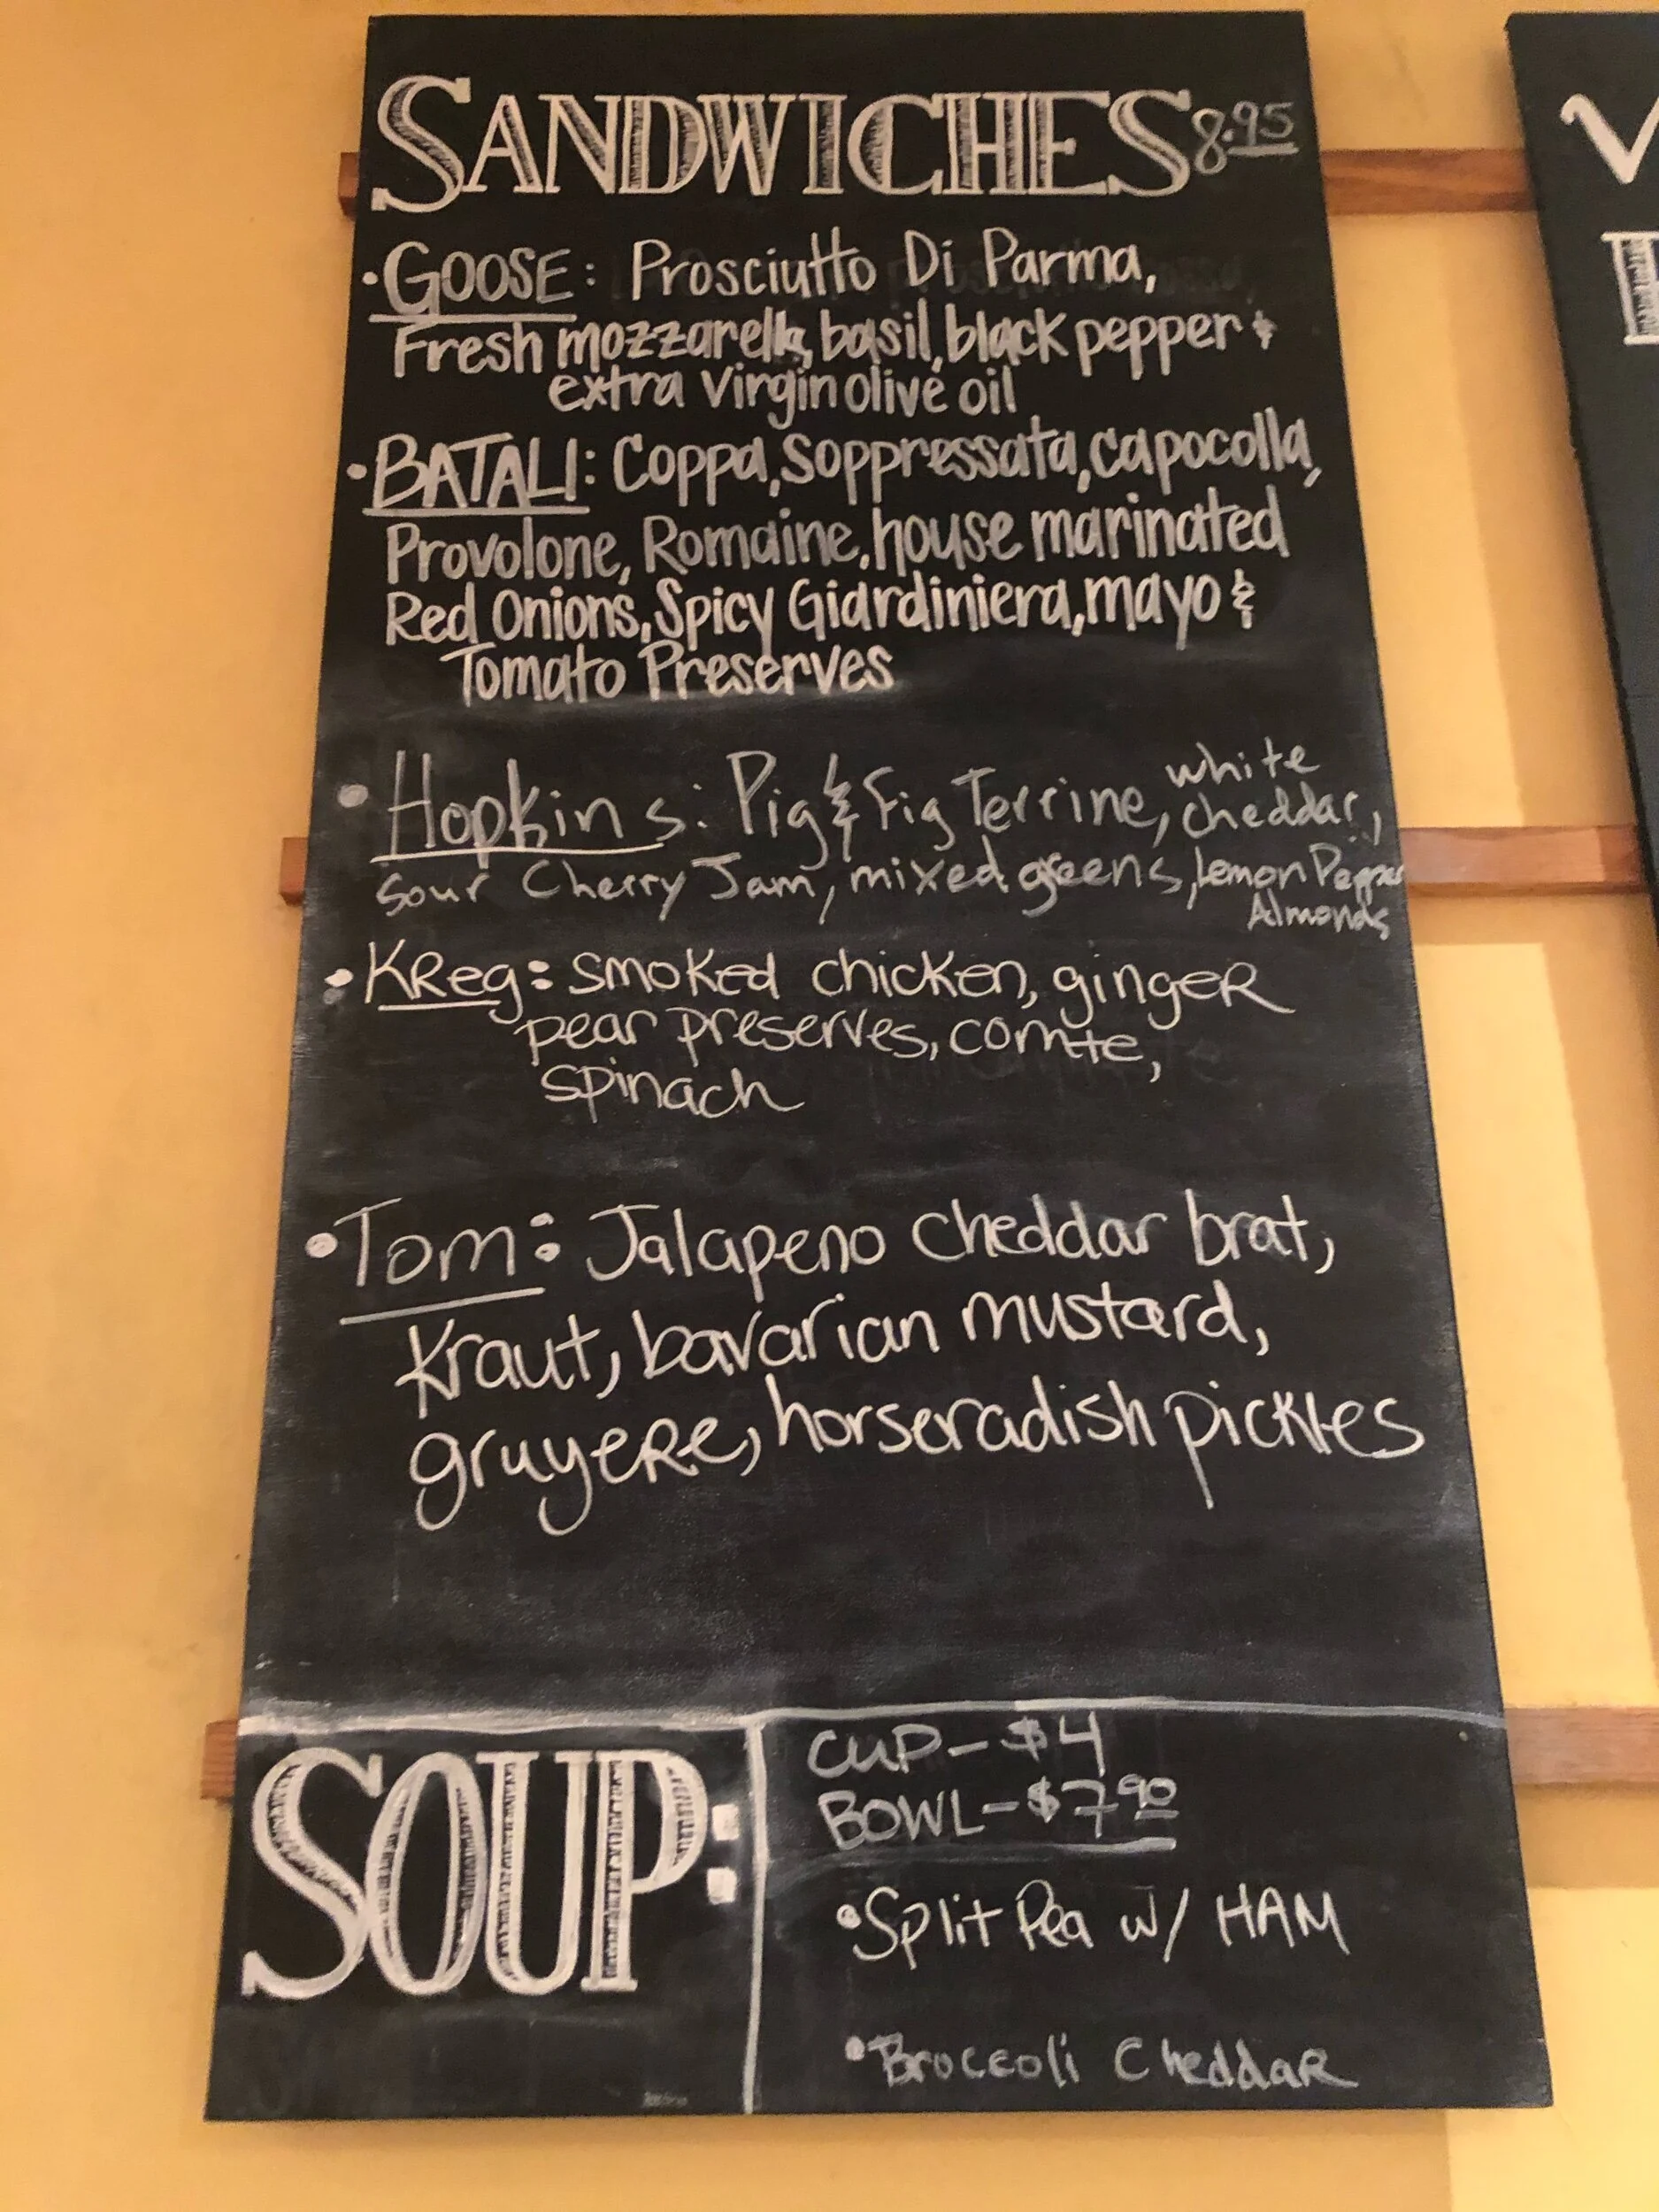 SANDWICHES 8.95
• GOOSE: Prosciutto Di Parma,
Fresh mozzarella, basil, black pepper &
extra virgin olive oil
• BATALI: Coppa, Soppressata, capocolla,
Provolone, Romaine, house marinated
Red Onions, Spicy Giardiniera, mayo &
Tomato Preserves
• Hopkins: Pig & Fig Terrine, white cheddar,
Sour Cherry Jam, mixed greens, Lemon Pepper
Almonds
• KReg: smoked chicken, ginger
pear preserves, comte,
spinach
• Tom: Jalapeno cheddar brat,
Kraut, bavarian mustard,
gruyere, horseradish pickles
SOUP:
CUP - $4
BOWL - $7.90
• Split Pea w/ HAM
• Broccoli Cheddar